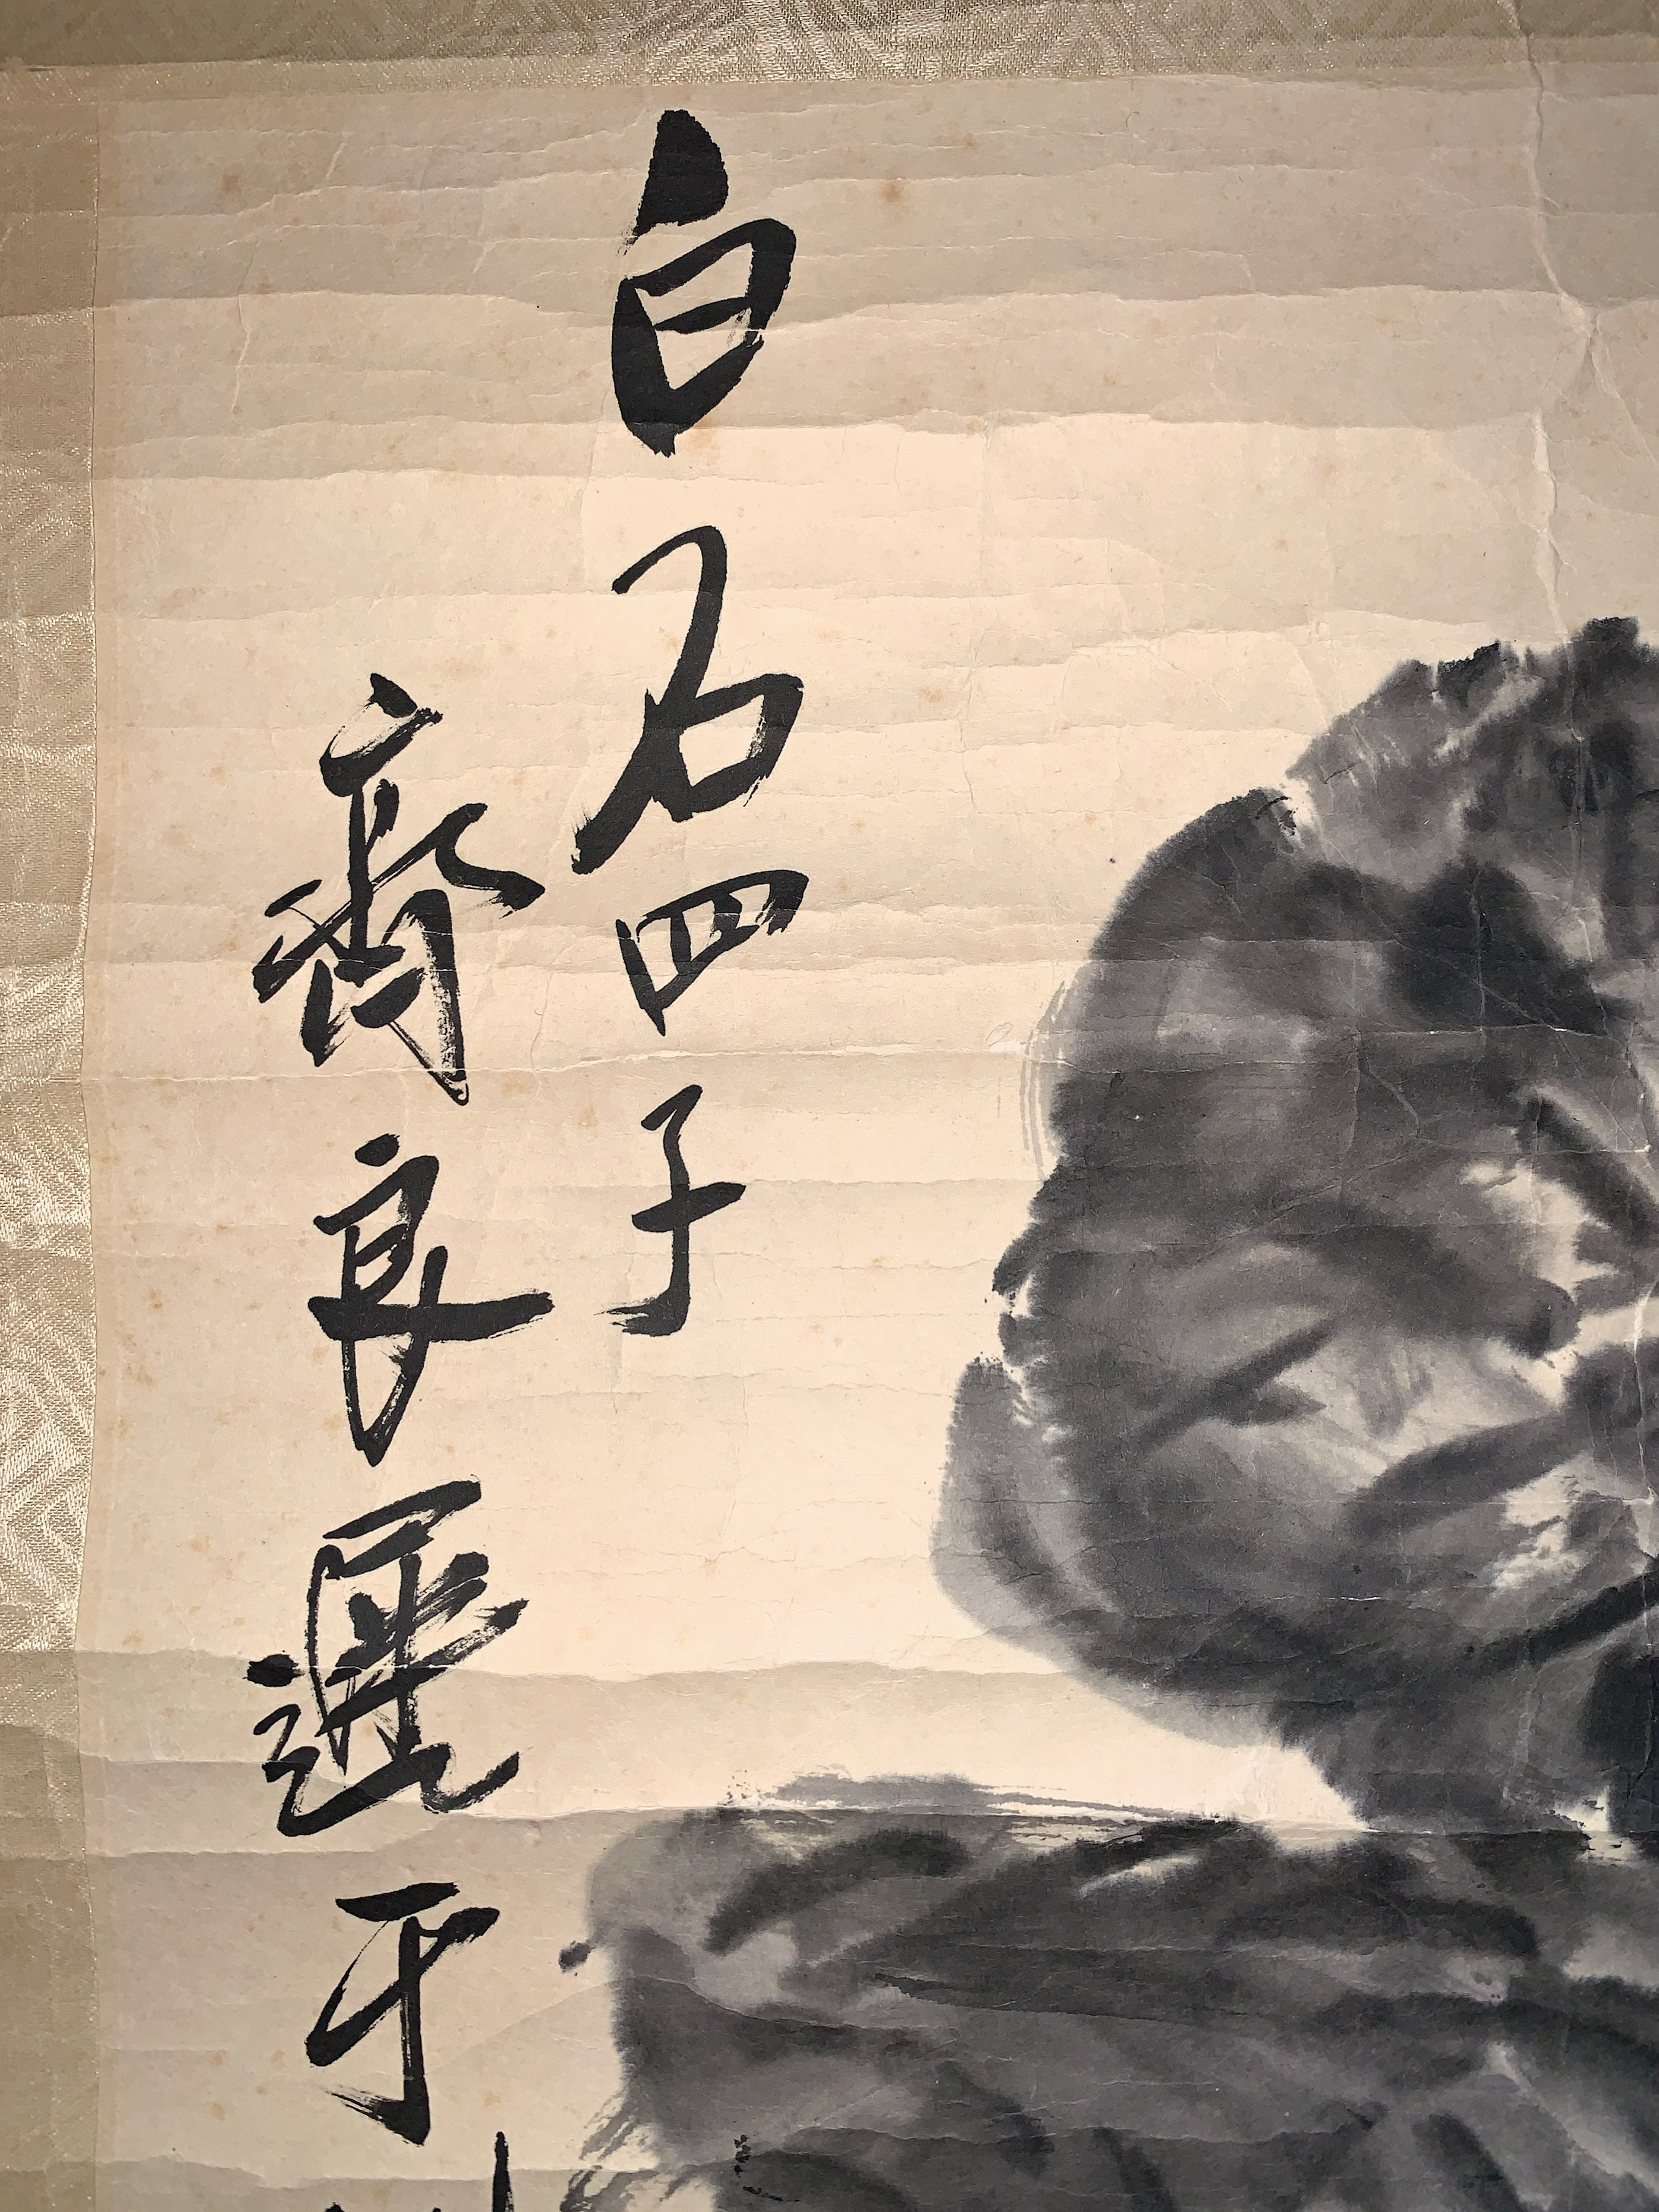 白石四子
齊良遲于